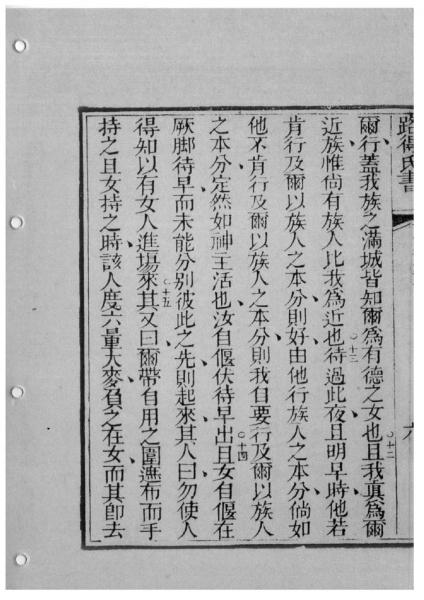 路得氏書
六
爾行蓋我族之滿城皆知爾為有德之女也○十二且我眞為爾
近族惟尙有族人比我為近也○十三待過此夜且明早時他若
肯行及爾以族人之本分則好由他行族人之本分倘如
他不肯行及爾以族人之本分則我自要行及爾以族人
之本分定然如神主活也汝自偃伏待早○十四出且女自偃在
厥脚待早而未能分別彼此之先則起來其人曰勿使人
得知以有女人進場來○十五其又曰爾帶自用之圍𢄙布而手
持之且女持之時該人度六量大麥負之在女而其卽去